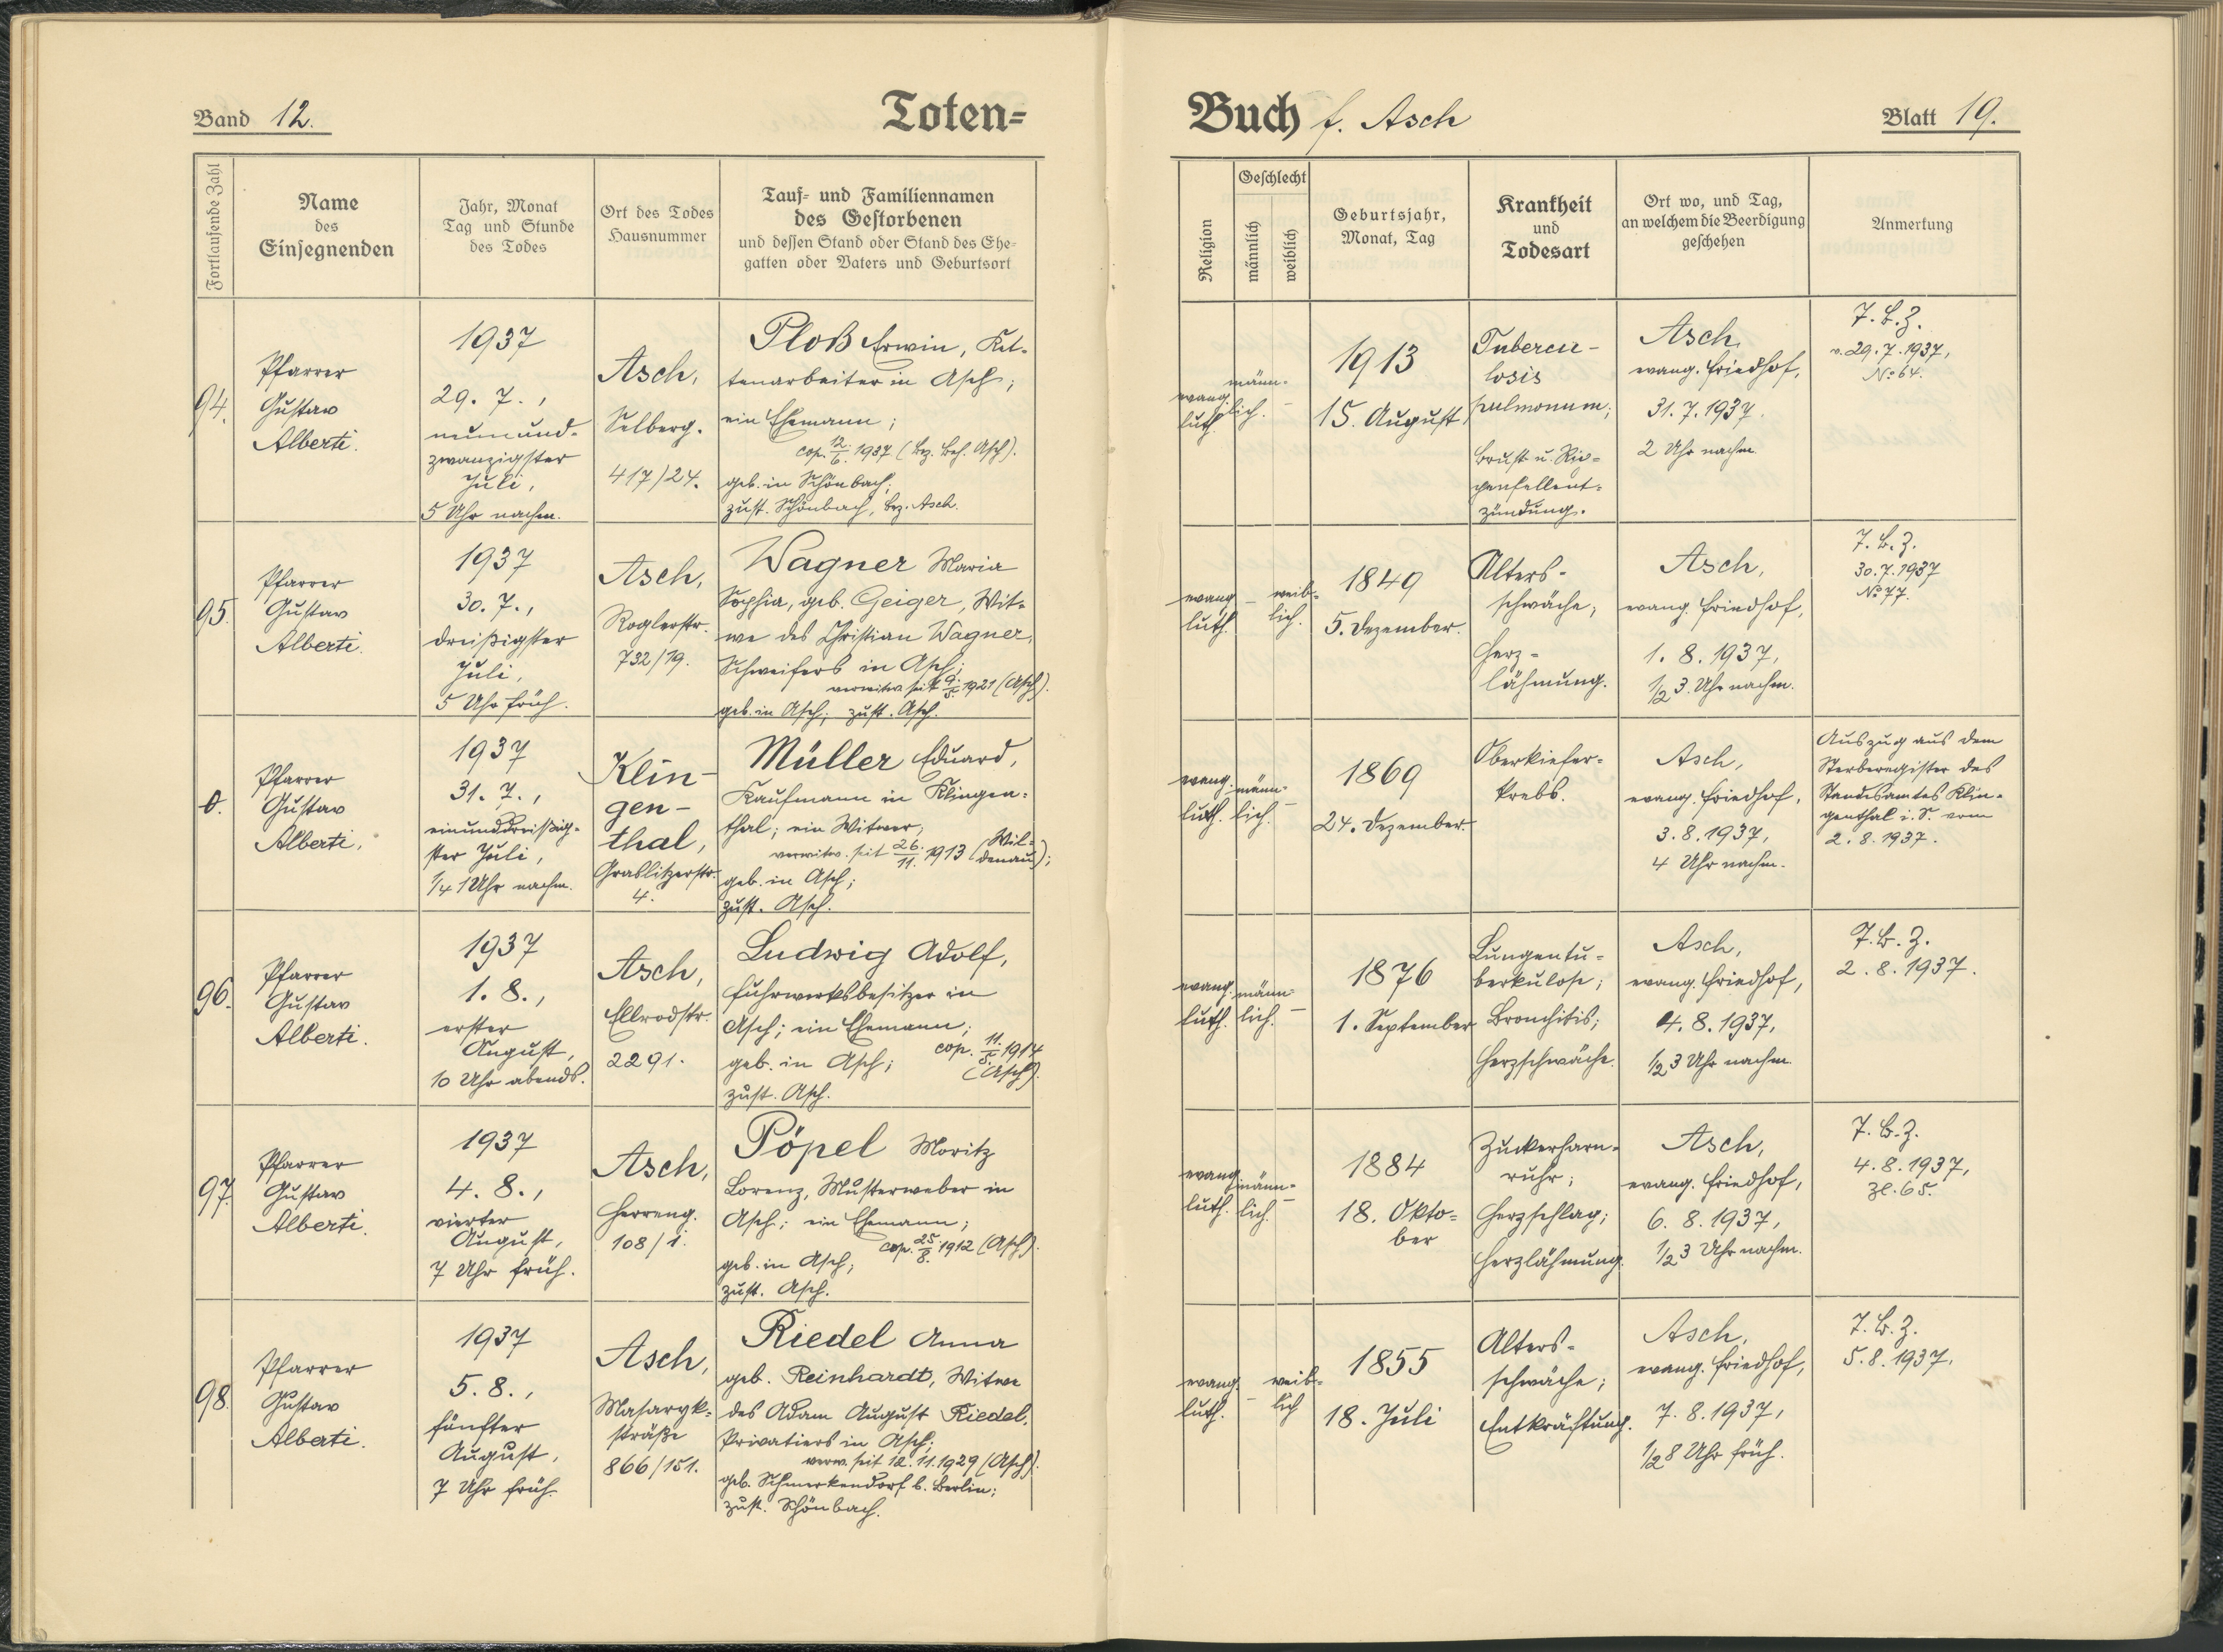 Band 12.
Toten=
Fortlaufende Zahl
Name
des
Einsegnenden
Jahr, Monat
Tag und Stunde
des Todes
Ort des Todes
Hausnummer
Tauf- und Familiennamen
des Gestorbenen
und dessen Stand oder Stand des Ehe-
gatten oder Vaters und Geburtsort
94.
Pfarrer
Gustav
Alberti.
1937
29. 7.,
neunund-
zwanzigster
Juli,
5 Uhr nachm.
Asch,
Selberg.
417/24.
Ploß Erwin, Ket-
tenarbeiter in Asch;
ein Ehemann;
cop. 12./6. 1937 (Bez. Beh. Asch).
geb. in Schönbach;
zust. Schönbach, Bez. Asch.
95.
Pfarrer
Gustav
Alberti.
1937
30. 7.,
dreißigster
Juli,
5 Uhr früh.
Asch,
Roglerstr.
732/19.
Wagner Maria
Sophia, geb. Geiger, Wit-
we des Christian Wagner,
Schweifers in Asch;
verwitw. seit 9./5. 1921 (Asch).
geb. in Asch; zust. Asch.
0.
Pfarrer
Gustav
Alberti.
1937
31. 7.,
einunddreißig-
ster Juli,
1/4 1 Uhr nachm.
Klin-
gen-
thal,
Graslitzerstr.
4.
Müller Eduard,
Kaufmann in Klingen-
thal; ein Witwer,
verwitw. seit 26./11. 1913 (Wil-
denau);
geb. in Asch;
zust. Asch.
96.
Pfarrer
Gustav
Alberti.
1937
1. 8.,
erster
August,
10 Uhr abends.
Asch,
Ellrodstr.
2291.
Ludwig Adolf,
Fuhrwerksbesitzer in
Asch; ein Ehemann;
cop. 11./5. 1914
geb. in Asch; (Asch).
zust. Asch.
97.
Pfarrer
Gustav
Alberti.
1937
4. 8.,
vierter
August,
7 Uhr früh.
Asch,
Herreng.
108/1.
Pöpel Moritz
Lorenz, Musterweber in
Asch; ein Ehemann;
cop. 25./8. 1912 (Asch).
geb. in Asch;
zust. Asch.
98.
Pfarrer
Gustav
Alberti.
1937
5. 8.,
fünfter
August,
7 Uhr früh.
Asch,
Masaryk-
straße
866/151.
Riedel Anna
geb. Reinhardt, Witwe
des Adam August Riedel,
Privatiers in Asch;
verw. seit 12. 11. 1929 (Asch).
geb. Schmerkendorf b. Berlin;
zust. Schönbach.
Buch f. Asch
Blatt 19.
Religion
Geschlecht
männlich
weiblich
Geburtsjahr,
Monat, Tag
Krankheit
und
Todesart
Ort wo, und Tag,
an welchem die Beerdigung
geschehen
Anmerkung
evang.
luth.
männ-
lich. –
1913
15. August
Tubercu-
losis
pulmonum;
Brust u. Rip-
penfellent-
zündung.
Asch,
evang. Friedhof,
31. 7. 1937.
2 Uhr nachm.
T. B. Z.
v. 29. 7. 1937,
No 64.
evang.
luth.
– weib-
lich.
1849
5. Dezember.
Alters-
schwäche;
Herz-
lähmung.
Asch,
evang. Friedhof,
1. 8. 1937,
1/2 3 Uhr nachm.
T. B. Z.
30. 7. 1937
No 77.
evang.
luth.
männ-
lich. –
1869
24. Dezember.
Oberkiefer-
krebs.
Asch,
evang. Friedhof,
3. 8. 1937,
4 Uhr nachm.
Auszug aus dem
Sterberegister des
Standesamtes Klin-
genthal i. S. vom
2. 8. 1937.
evang.
luth.
männ-
lich. –
1876
1. September
Lungentu-
berkulose;
Bronchitis;
Herzschwäche.
Asch,
evang. Friedhof,
4. 8. 1937,
1/2 3 Uhr nachm.
T. B. Z.
2. 8. 1937.
evang.
luth.
männ-
lich. –
1884
18. Okto-
ber
Zuckerharn-
ruhr;
Herzschlag;
Herzlähmung.
Asch,
evang. Friedhof,
6. 8. 1937,
1/2 3 Uhr nachm.
T. B. Z.
4. 8. 1937,
Zl. 65.
evang.
luth.
– weib-
lich
1855
18. Juli
Alters-
schwäche;
Entkräftung.
Asch,
evang. Friedhof,
7. 8. 1937,
1/2 8 Uhr früh.
T. B. Z.
5. 8. 1937.